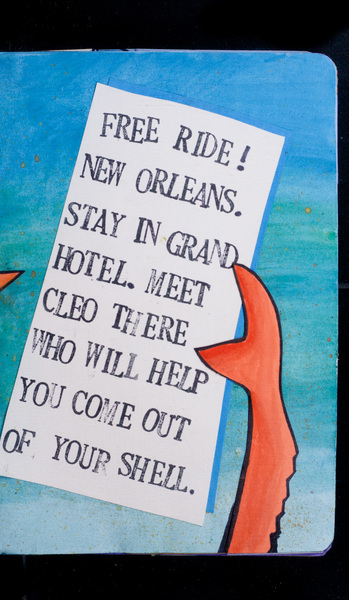 FREE RIDE!
NEW ORLEANS.
STAY IN GRAND
HOTEL. MEET
CLEO THERE
WHO WILL HELP
YOU COME OUT
OF YOUR SHELL.